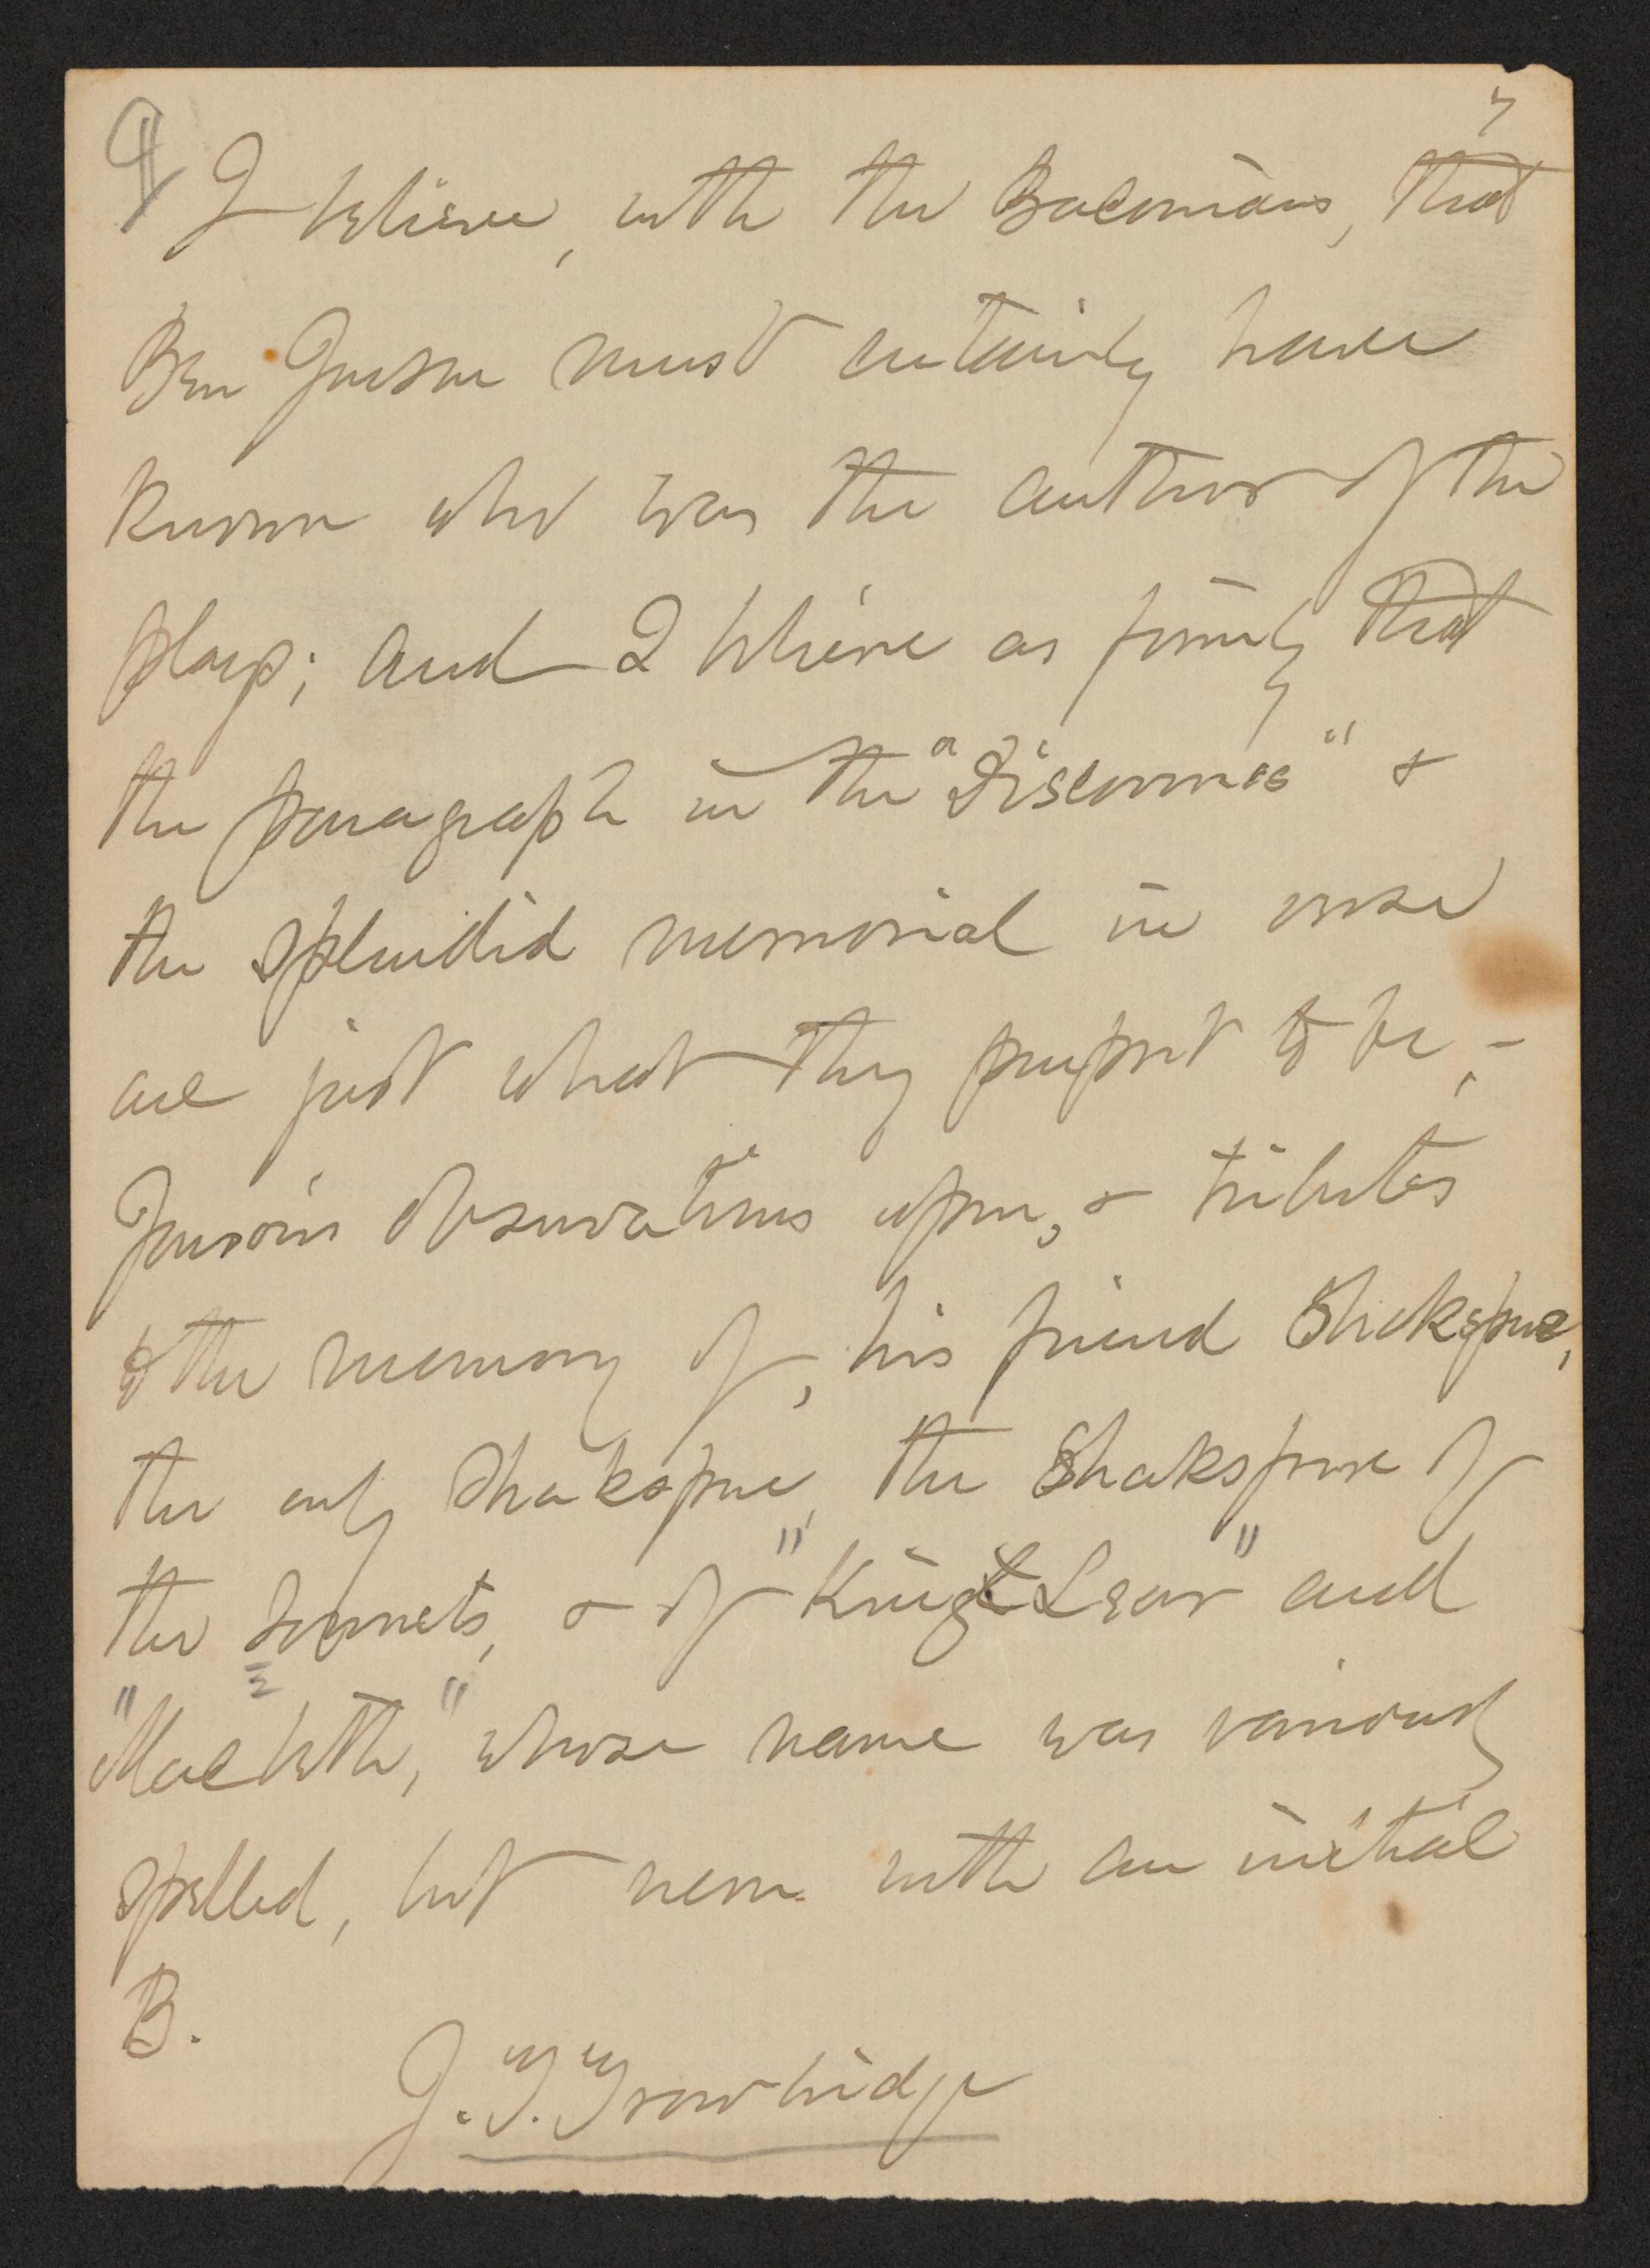 7
¶ I believe, with the Baconians, that
Ben Jonson must certainly have
known who was the author of the
plays; and I believe as firmly that
the paragraph in the "Discoveries" &
the splendid memorial in verse
are just what they purport to be, –
Jonson's observations upon, & tributes
to the memory of, his friend Shakspere,
the only Shakspere, the Shakspere of
the Sonnets, & of "King Lear" and
"Macbeth," whose name was variously
spelled, but never with an initial
B.
J. T. Trowbridge